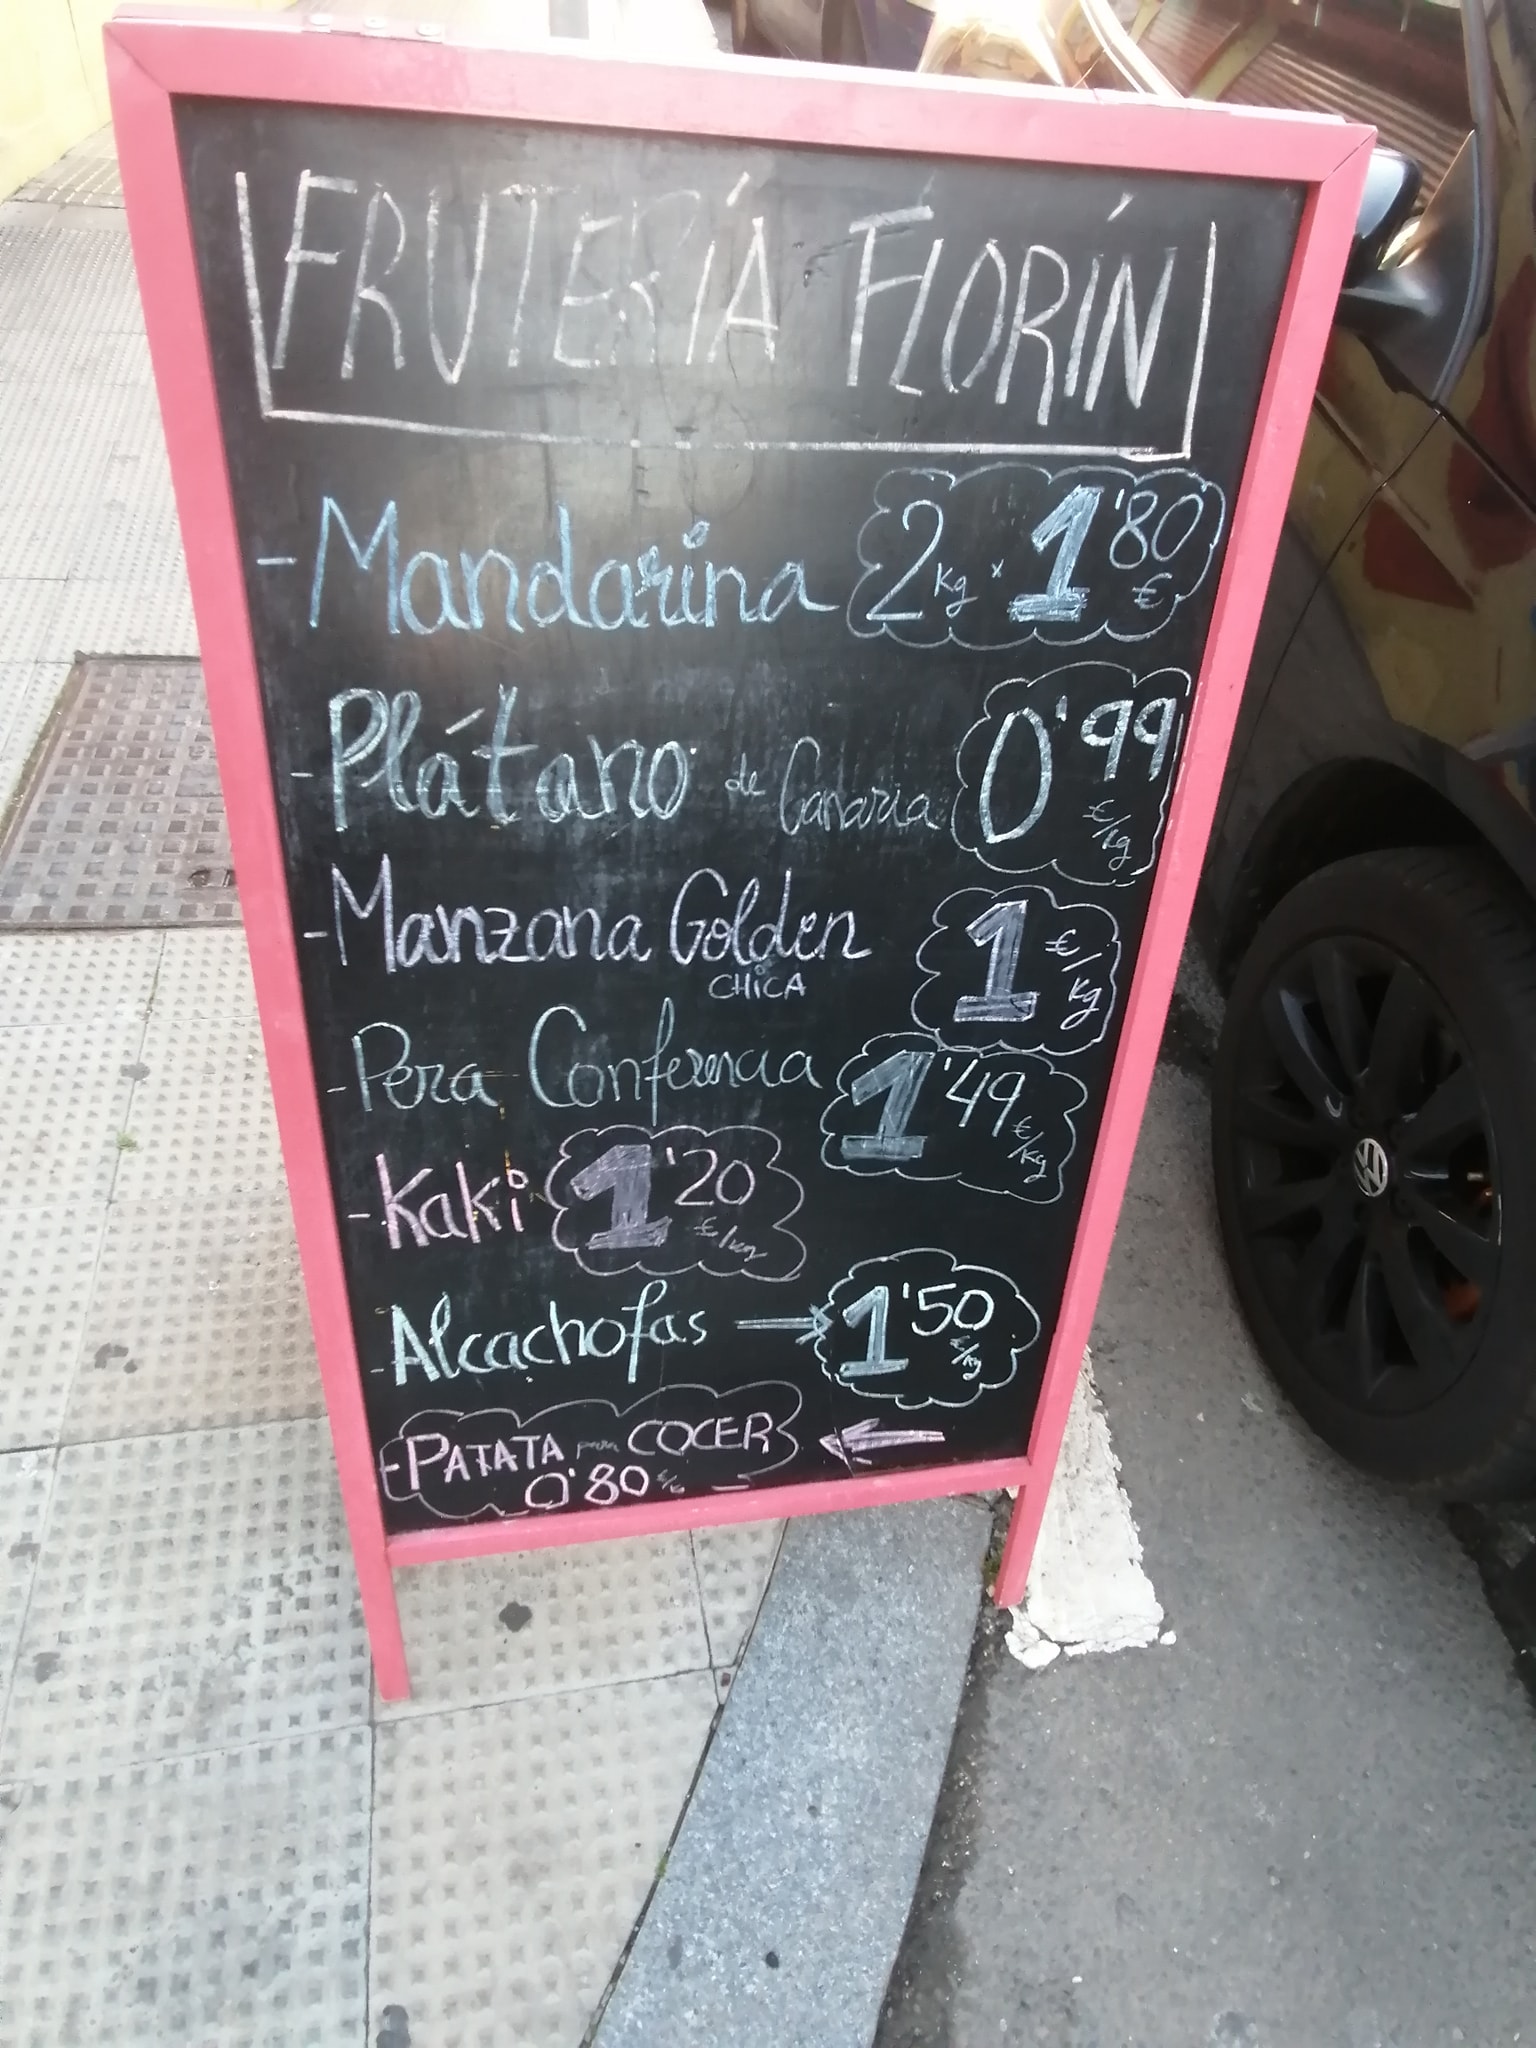 FRUTERÍA FLORÍN
- Mandarina 2 kg x 1'80 €
- Plátano de Canaria 0'99 €/kg
- Manzana Golden 1 €/kg
CHICA
- Pera Conferencia 1'49 €/kg
- Kaki 1'20 €/kg
- Alcachofas → 1'50 €/kg
- PATATA para COCER ←
0'80 €/kg